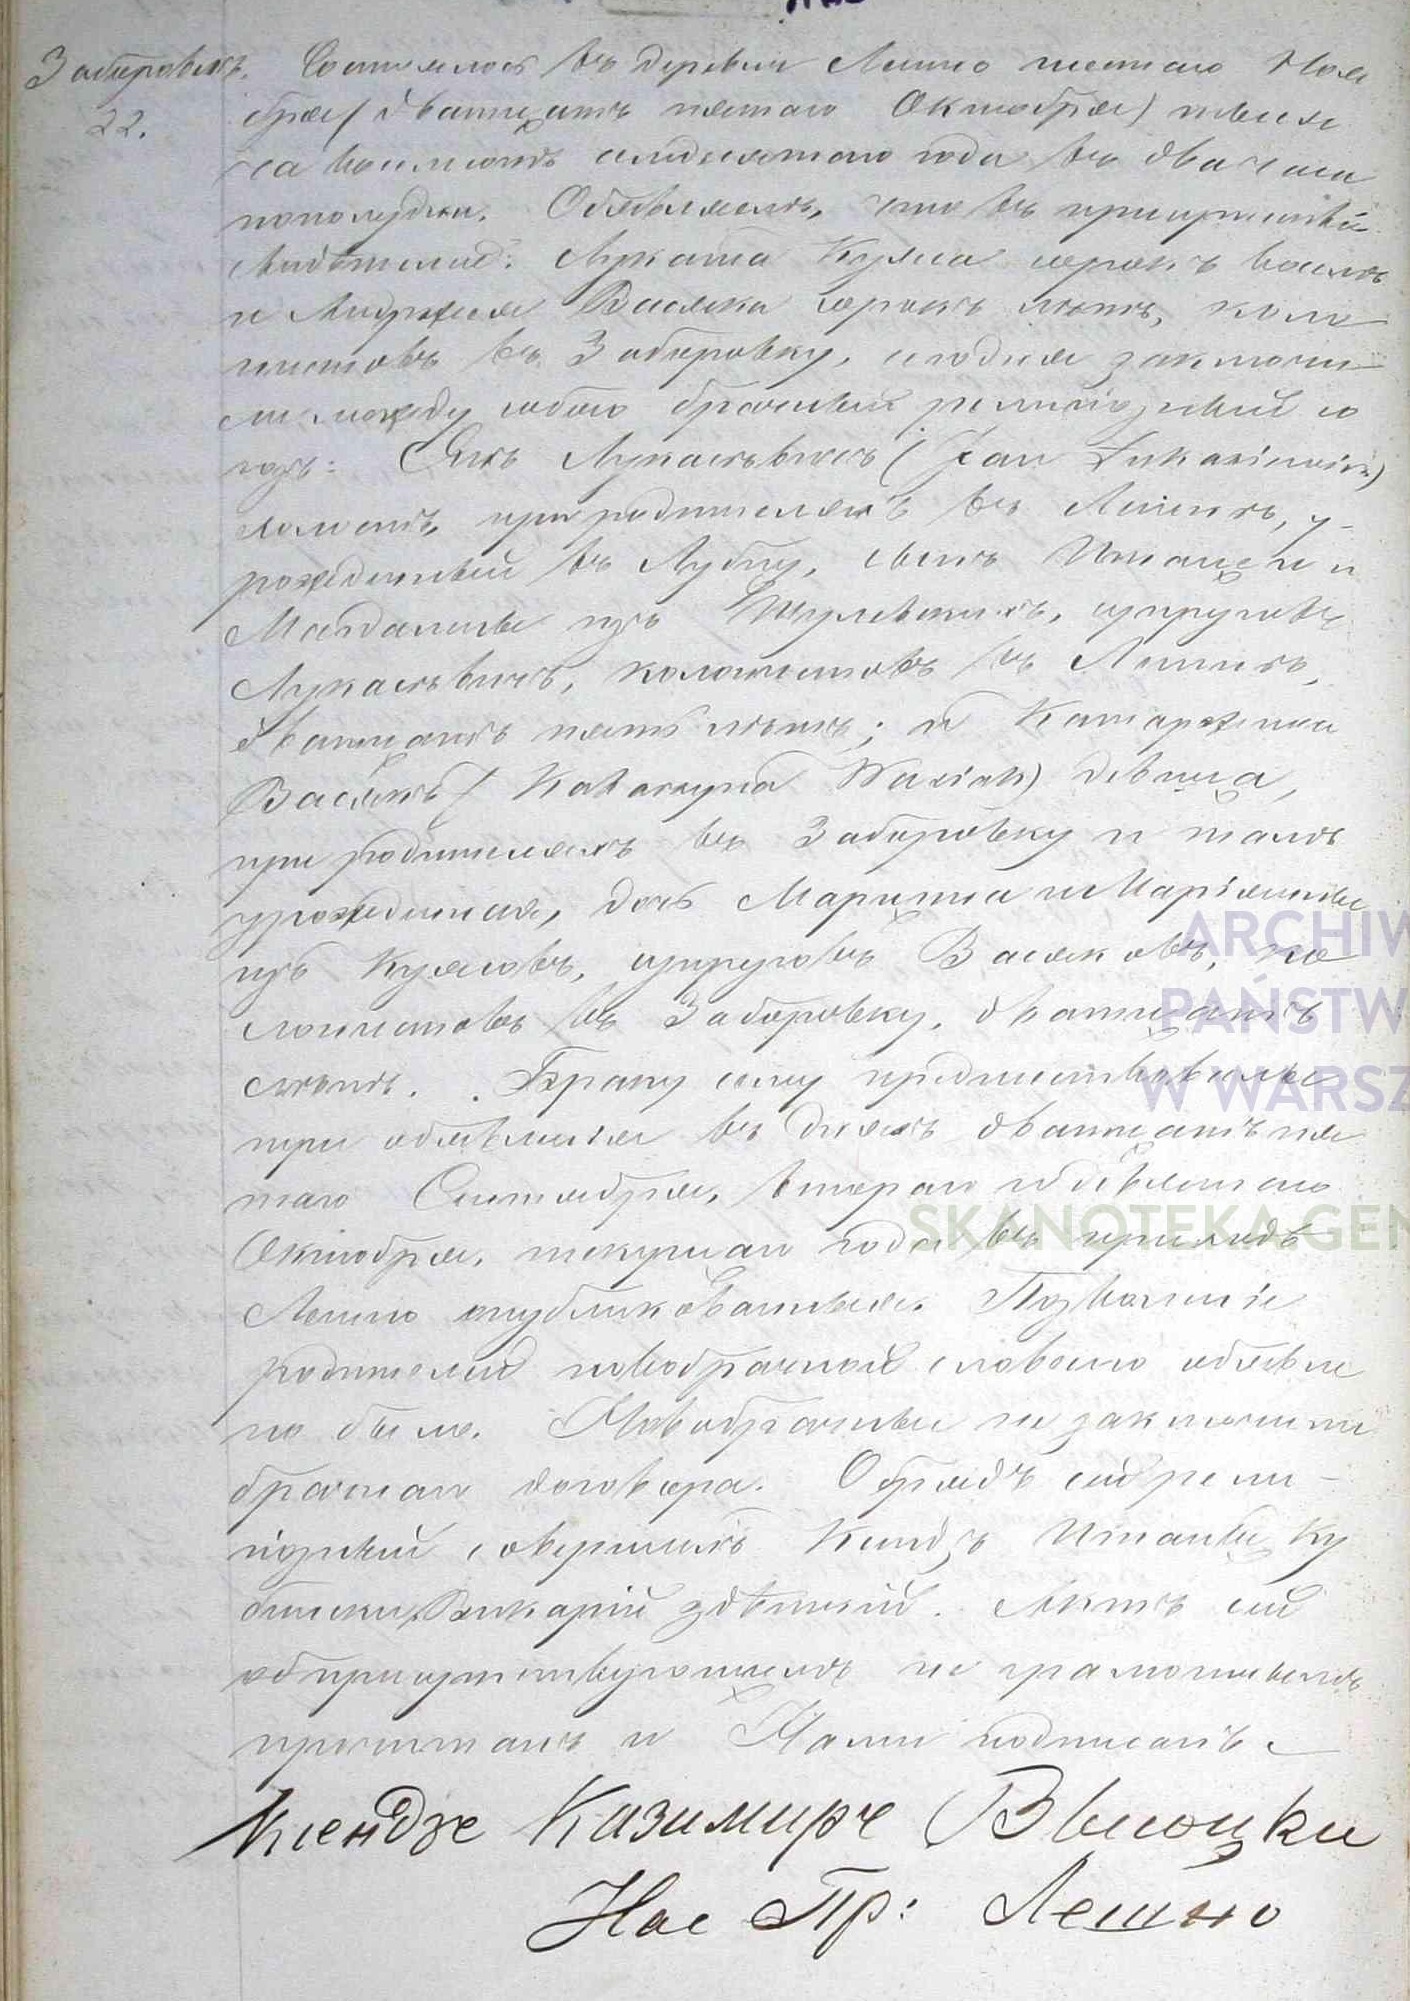 Забировекъ.
22.
Состоялось въ деревни Лешно шестаго Ноя
бря (двадцать пятаго Октября) тысяча
восемьсотъ семдесятаго года въ два часа
пополудни. Объявляемъ, что въ присутствіи
свидѣтелей: Лукаша Куяса сорокъ восемь
и Андржея Васяка сорокъ лѣтъ, коло
нистовъ въ Заборовку, сегодня заключи
ли между собою брачный религіозный со
юзъ: Янъ Лукасѣвичъ (Jan Łukasiewicz)
холостъ, при родителяхъ въ Лешнѣ, у-
рожденный въ Лубцу, сынъ Игнаця и
Магдалены изъ супруговъ
Лукасѣвичъ, колонистовъ въ Лешнѣ,
двадцать пять лѣтъ; и Катаржина
Васякъ (Katarzyna Wasiak) дѣвица,
при родителяхъ въ Заборовку и тамъ
урожденная, дочь Марцина и Маріянны
изъ Куясовъ, супруговъ Васяковъ, ко
лонистовъ въ Заборовку, двадцать
лѣтъ. Браку сему предшествовали
три объявленія въ дняхъ двадцать пя
таго Сентября, втораго и девятаго
Октября, текущаго года въ приходѣ
Лешно опубликованныя. Позволеніе
родителей новобрачной словесно объявле
но было. Новобрачные не заключили
брачнаго договора. Обрядъ сей рели-
гіозный совершилъ Ксендзъ Игнацы Ку
Викарій здѣшній. Актъ сей
присутствующимъ неграмотнымъ
прочитанъ и Нами подписанъ.
Ксендзъ Казимиръ Высоцки
Нас Пр: Лешно
ARCHIW
PAŃSTW
W WARSZ
SKANOTEKA.GEN